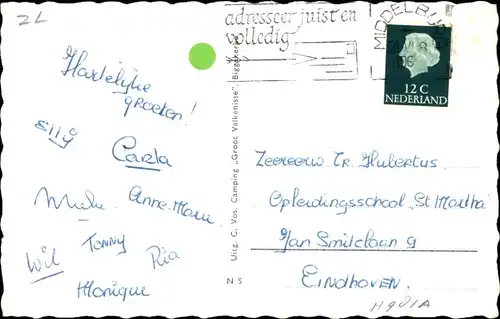 ZL
adresseer juist en
volledig
MIDDELBU
12 C
NEDERLAND
Hartelijke
groeten!
Elly
Carla
Anne-Marie
Tonny
Ria
Wil
Monique
Uitg. C. Vos, Camping „Groot Valkenisse”, Biggekerke
N S
Zeereerw Fr. Hubertus.
Opleidingsschool „St Martha
Jan Smitzlaan 9
Eindhoven.
H901A